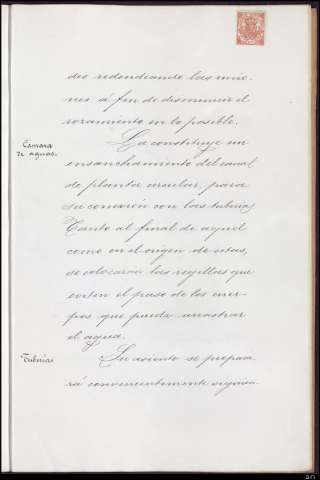 des redondeando las unio-
nes á fin de disminuir el
rozamiento en lo posible.
Cámara
de aguas.
La constituye un
ensanchamiento del canal
de planta circular, para
su conexión con las tuberías
Tanto al final de aquel
como en el origen de estas,
se colocarán las rejillas que
eviten el paso de los cuer-
pos que pueda arrastrar
el agua.
Tuberías
Su asiento se prepara-
rá convenientemente segun